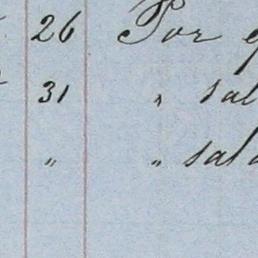 26 Por
31 " sal
" " sala